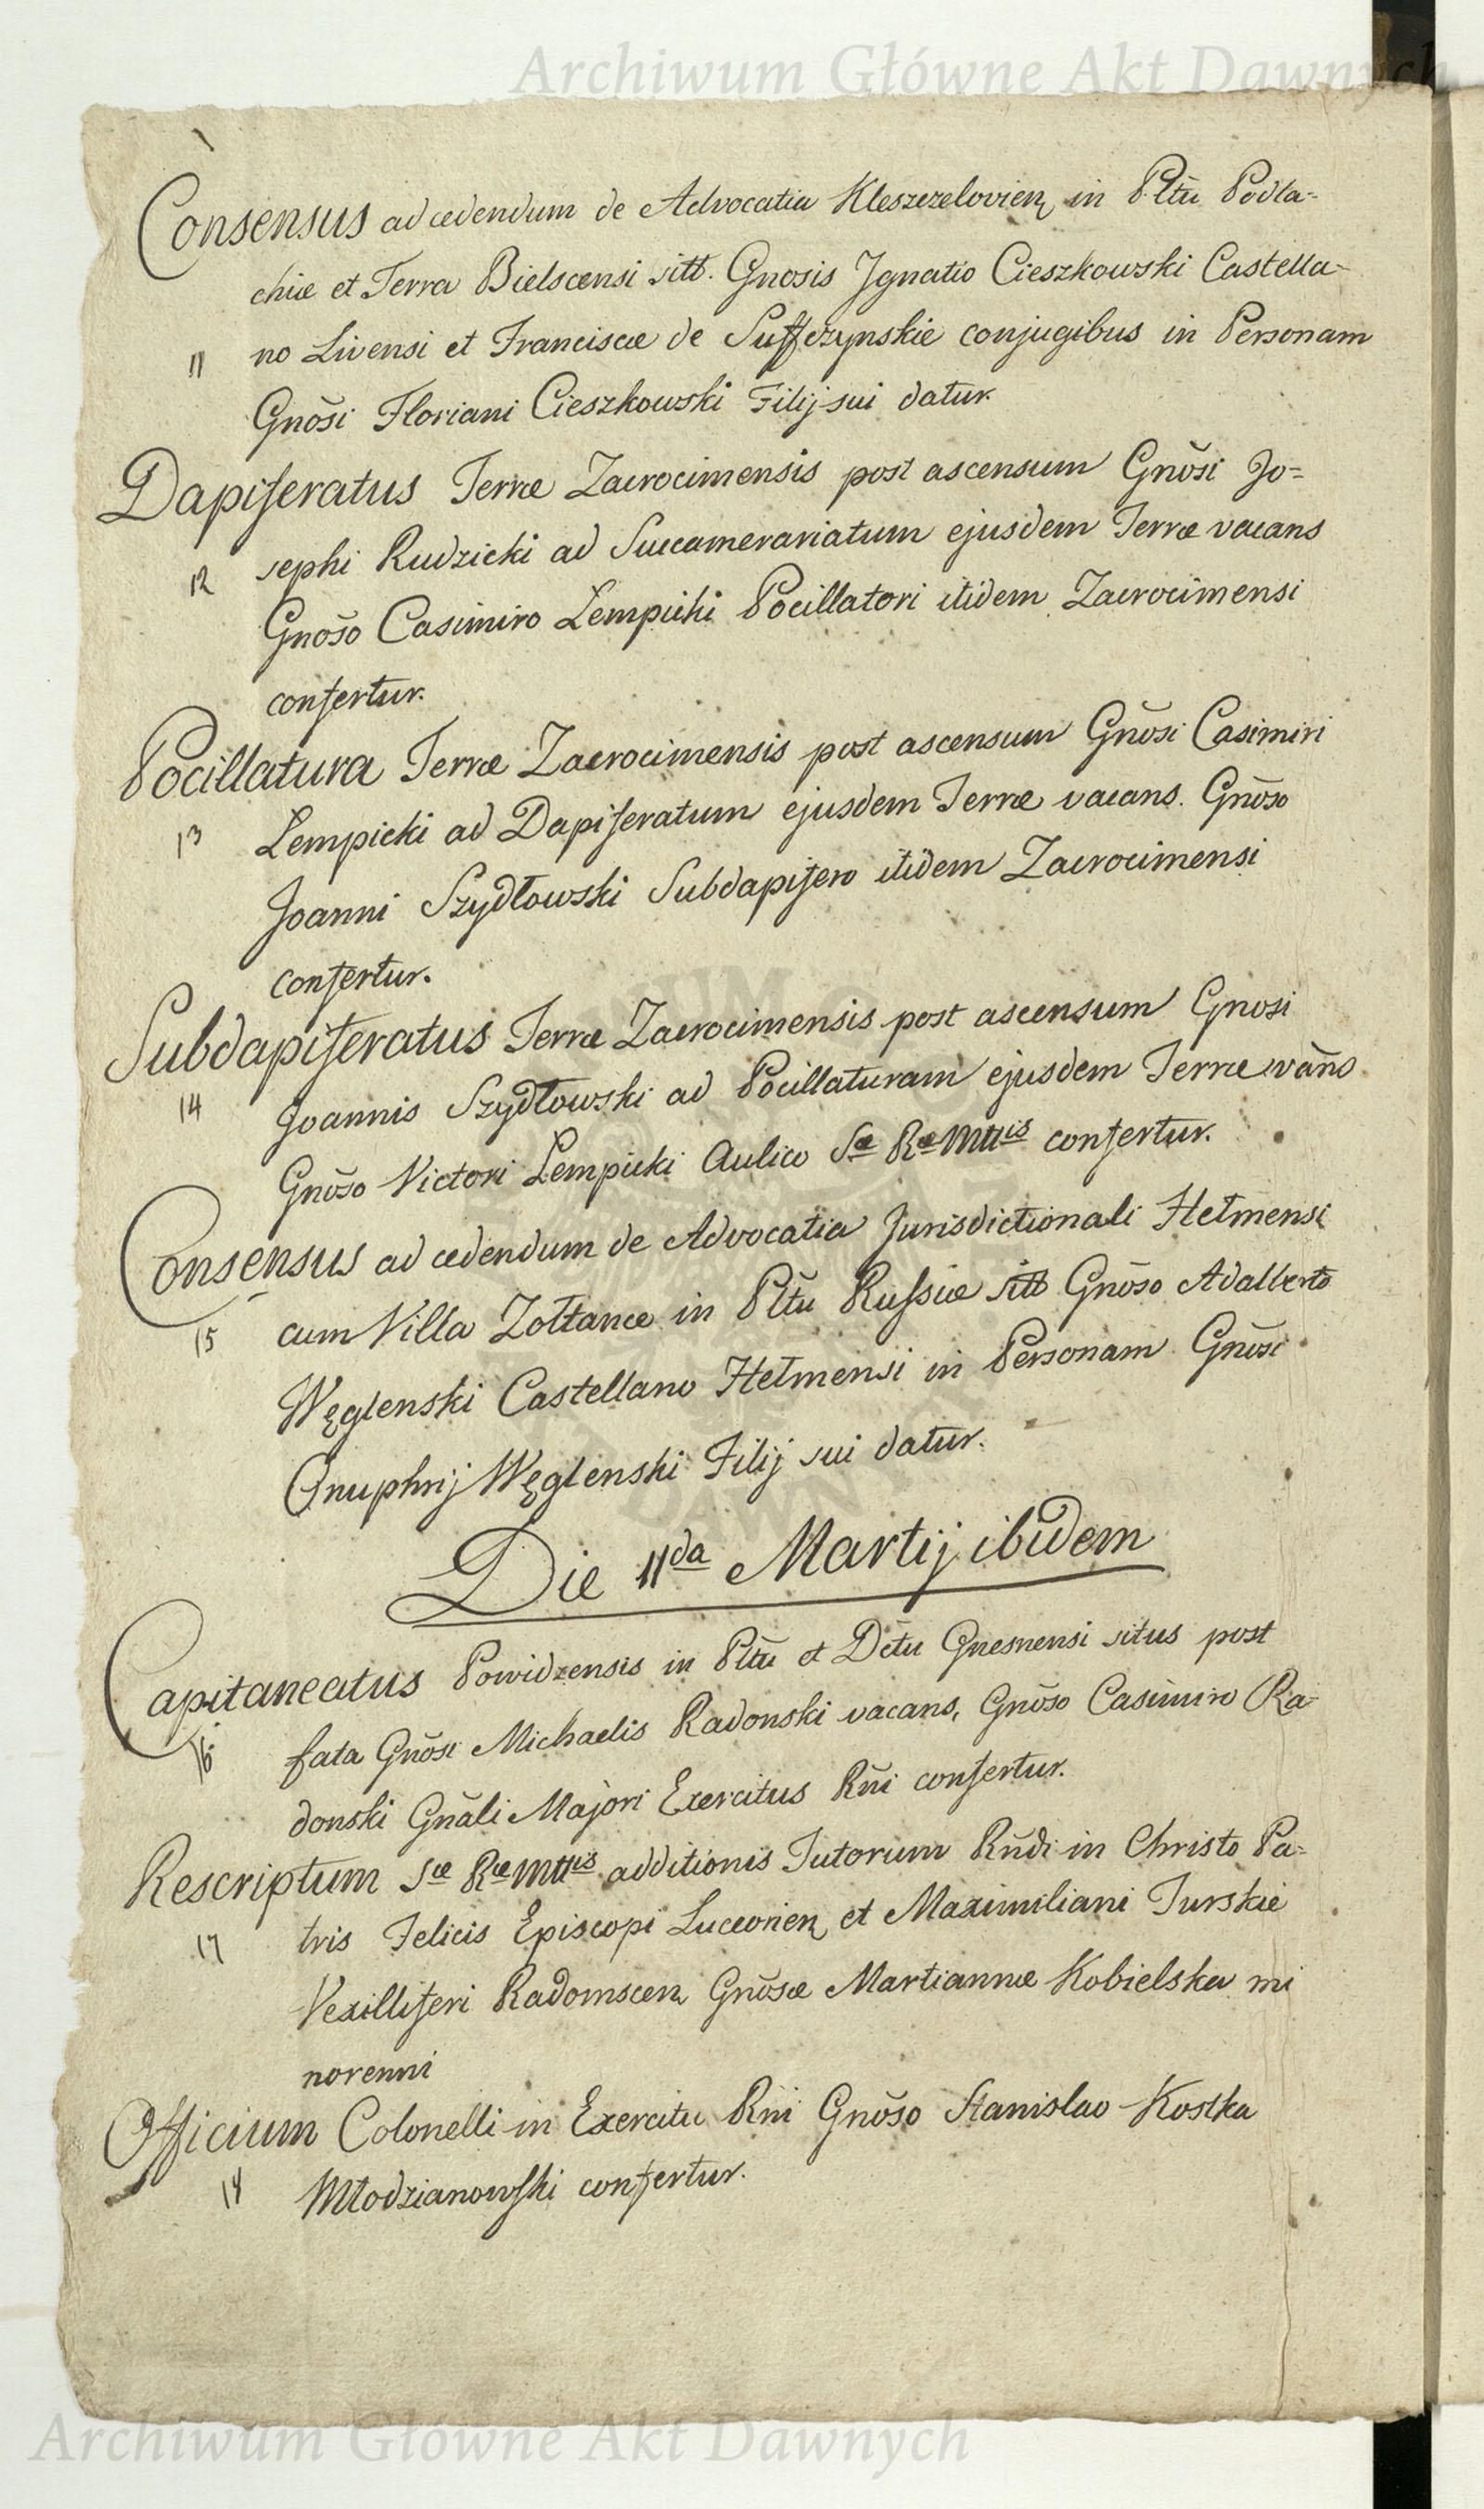 Archiwum Główne Akt Dawnych
Consensus ad cedendum de Advocatia Kleszczelovien in Pltū Podla=
chiæ et Terra Bielscensi sitt. Gnosis Jgnatio Cieszkowski Castella=
11 no Livensi et Franciscæ de Suffczynskie conjugibus in Personam
Gnōsi Floriani Cieszkowski Filij sui datur.
Dapiferatus Terræ Zacrocimensis post ascensum Gnōsi Jo=
12 sephi Rudzicki ad Succamerariatum ejusdem Terræ vacans
Gnōso Casimiro Lempicki Pocillatori itidem Zacrocimensi
confertur.
Pocillatura Terræ Zacrocimensis post ascensum Gnōsi Casimiri
13 Lempicki ad Dapiferatum ejusdem Terræ vacans. Gnōso
Joanni Szydłowski Subdapifero itidem Zacrocimensi
confertur.
Subdapiferatus Terræ Zacrocimensis post ascensum Gnosi
14 Joannis Szydłowski ad Pocillaturam ejusdem Terræ vāns
Gnōso Victori Lempicki Aulico Sæ Ræ Mttis confertur.
Consensus ad cedendum de Advocatia Jurisdictionali Hełmensi
15 cum Villa Zołtance in Pltū Russiæ sitt Gnōso Adalberto
Węglenski Castellano Hełmensi in Personam Gnōsi
Onuphrij Węglenski Filij sui datur.
Die 11da Martij ibidem
Capitaneatus Powidzensis in Pltū et Dctu Gnesnensi situs post
16 fata Gnōsi Michaelis Radonski vacans, Gnōso Casimiro Ra=
donski Gnāli Majori Exercitus Rñi confertur.
Rescriptum Sæ Ræ Mttis additionis Tutorum Rñdi in Christo Pa=
17 tris Felicis Episcopi Luceorien et Maximiliani Turskie
Vexilliferi Radomscen Gnōsæ Martiannæ Kobielska mi
norenni
Officium Colonelli in Exercitu Rñi Gnōso Stanislao Kostka
18 Młodzianowski confertur.
Archiwum Główne Akt Dawnych